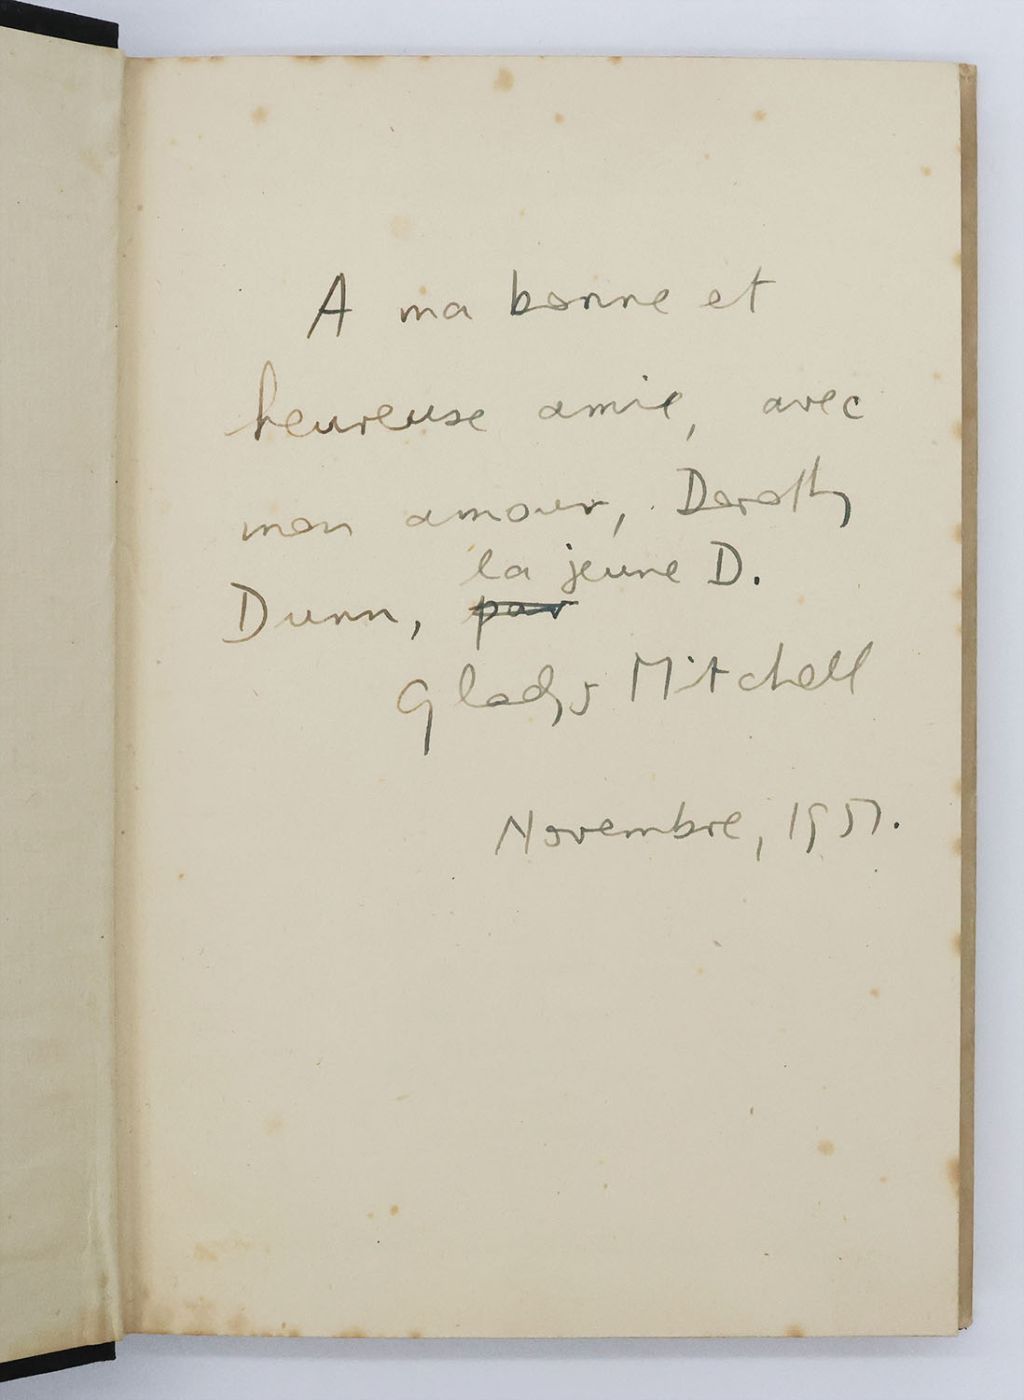 A ma bonne et
heureuse amie, avec
mon amour, Dorothy
la jeune D.
Dunn, par
Gladys Mitchell
Novembre, 1957.